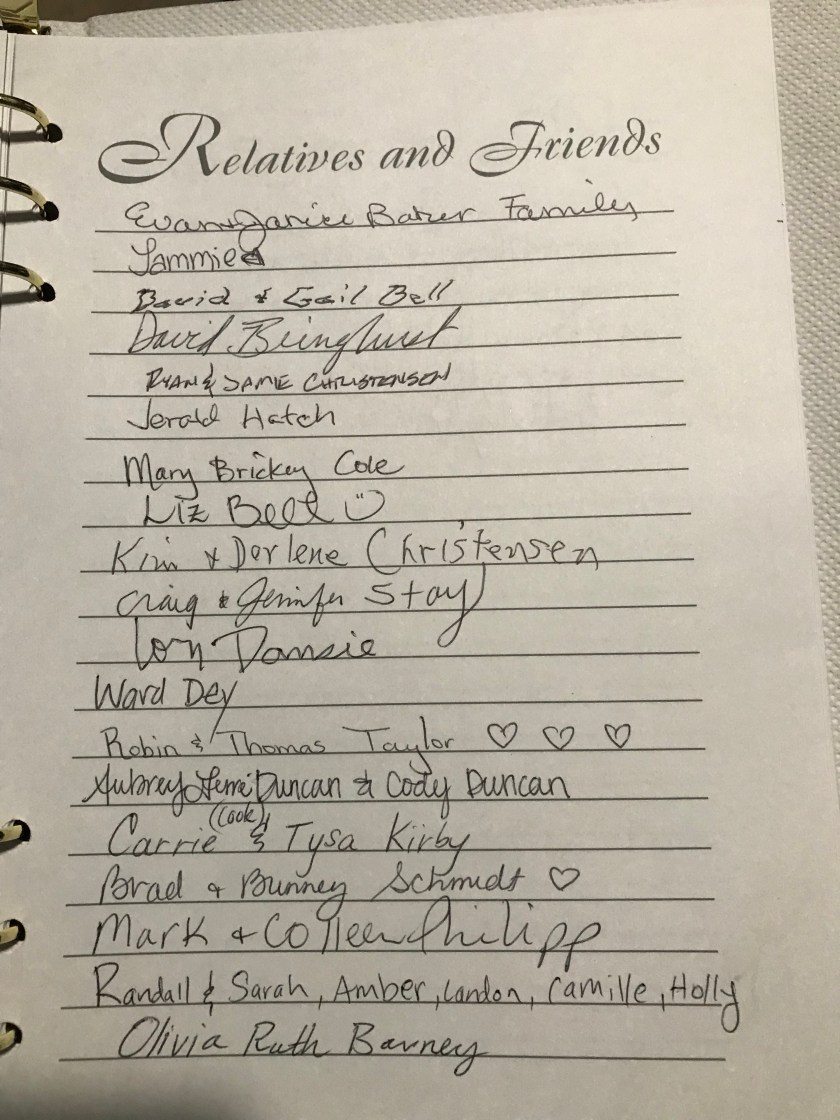 Relatives and Friends
Evan & Janice Baker Family
Tammie
David & Gail Bell
David
RYAN & JAMIE CHRISTENSEN
Jerald Hatch
Mary Brickey Cole
Liz Bell
Kim & Darlene Christensen
Craig & Jennifer Stay
Dansie
Ward Dey
Robin & Thomas Taylor ♡ ♡ ♡
Aubrey Duncan & Cody Duncan
(Cook)
Carrie & Tysa Kirby
Brad & Bunney Schmidt ♡
Mark & Colleen Philipp
Randall & Sarah, Amber, Landon, Camille, Holly
Olivia Ruth Barney